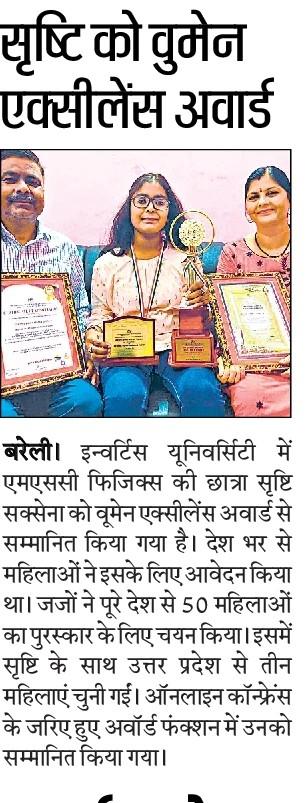 सृष्टि को वुमेन
एक्सीलेंस अवार्ड
बरेली। इन्वर्टिस यूनिवर्सिटी में
एमएससी फिजिक्स की छात्रा सृष्टि
सक्सेना को वूमेन एक्सीलेंस अवार्ड से
सम्मानित किया गया है। देश भर से
महिलाओं ने इसके लिए आवेदन किया
था। जजों ने पूरे देश से 50 महिलाओं
का पुरस्कार के लिए चयन किया। इसमें
सृष्टि के साथ उत्तर प्रदेश से तीन
महिलाएं चुनी गईं। ऑनलाइन कॉन्फ्रेंस
के जरिए हुए अवॉर्ड फंक्शन में उनको
सम्मानित किया गया।